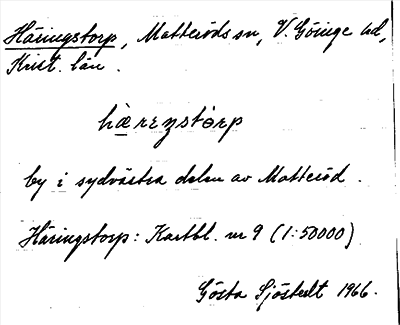 Häringstorp, Matteröds sn, V. Göinge hd,
Krist. län.
hærɪŋstȯrp
by i sydvästra delen av Matteröd.
Häringstorp: Kartbl. nr 9 (1:50000)
Gösta Sjöstedt 1966.